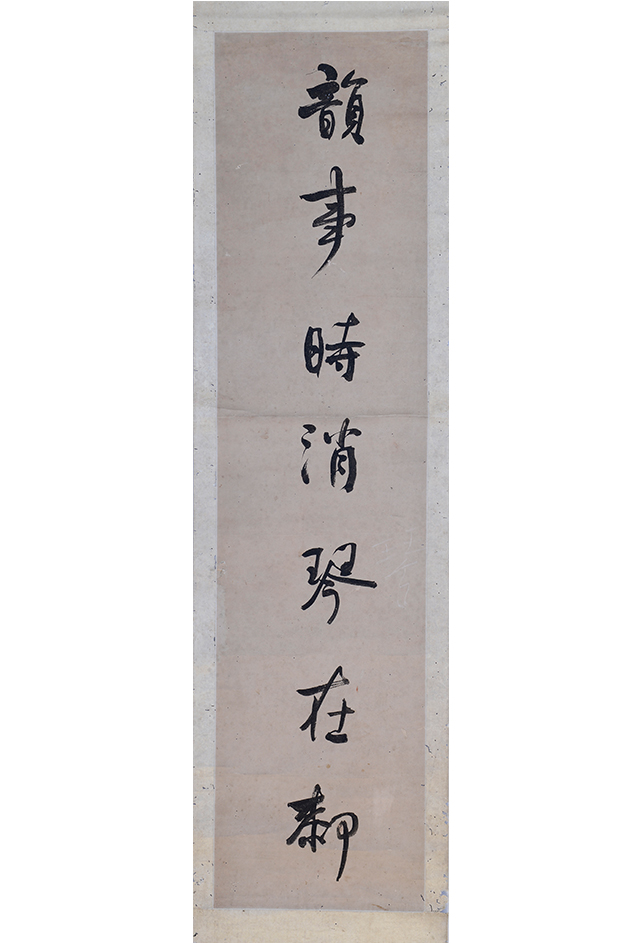 韻事時消琴在厀